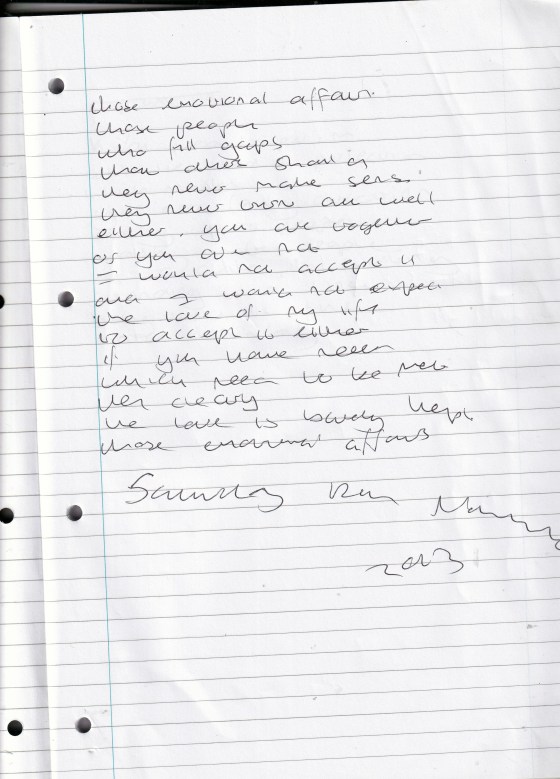 those emotional affairs.
those people
who fill gaps
than other should
they never make sense.
they never turn out well
either. you are together
or you are not
I would not accept it
and I would not expect
the love of my life
to accept it either
if you have needs
which need to be met
then clearly
the love is barely kept
those emotional affairs
Saturday
2013